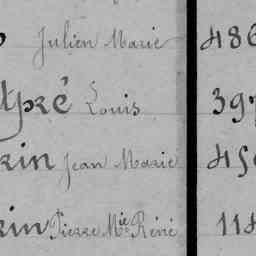 Julien Marie 486
pré Louis 397
rin Jean Marie 45
rin Pierre Mie René 114